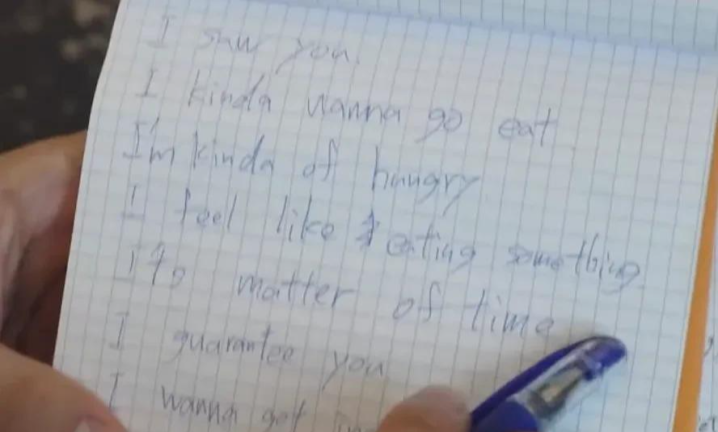 I saw you.
I kinda wanna go eat
I'm kinda of hungry
I feel like eating something
It's matter of time
I guarantee you
I wanna get